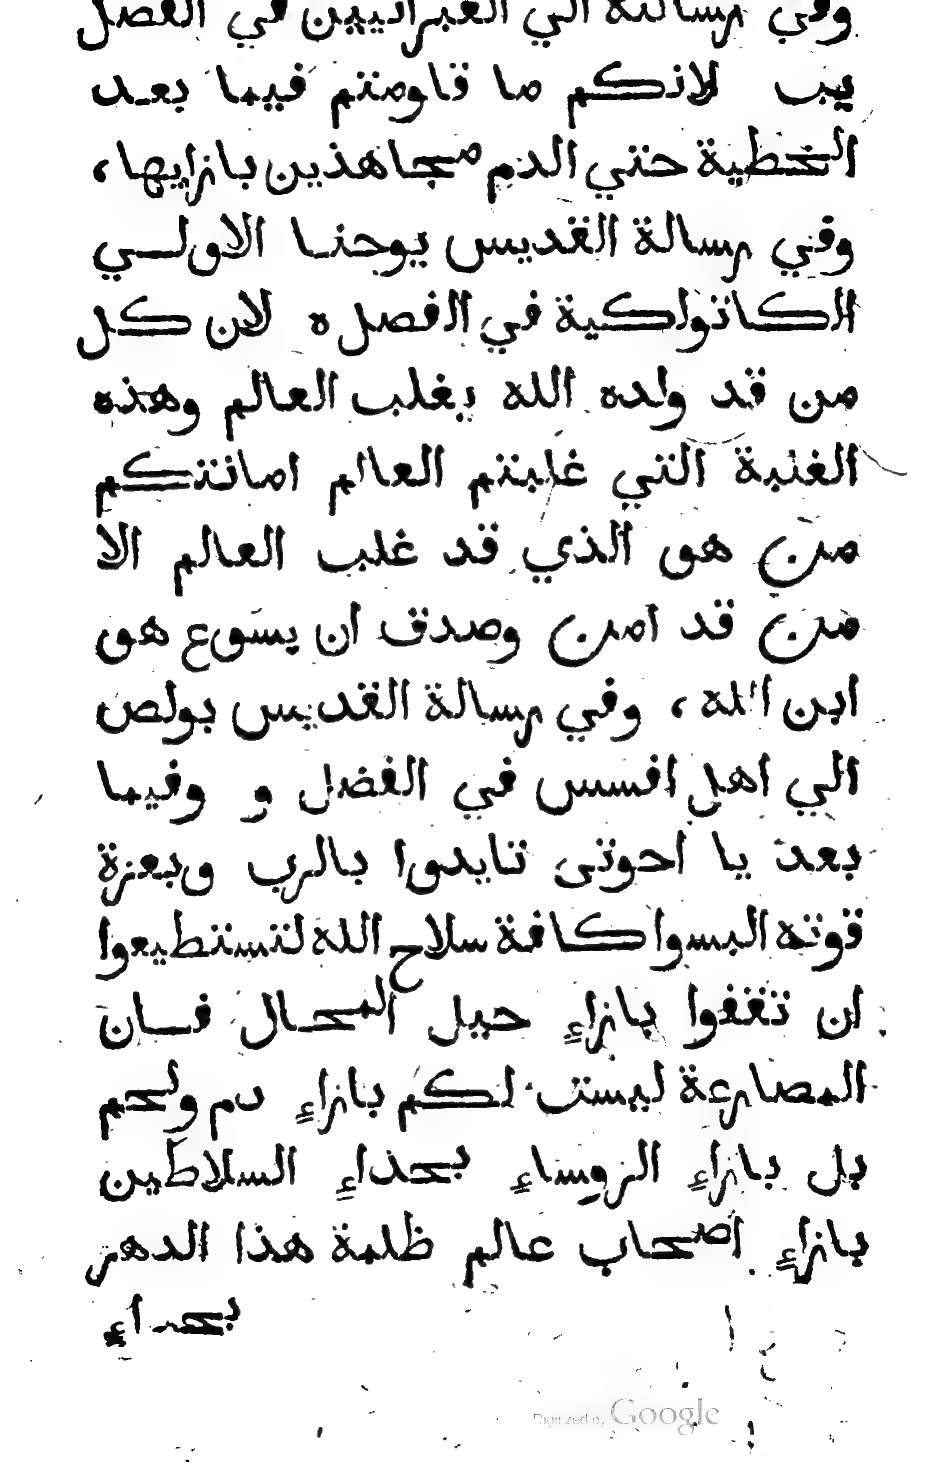 وفي رسالته الي العبرانيين في الفصل
يب لانكم ما قاومتم فيما بعد
الخطية حتي الدم مجاهذين بازايها،
وفي رسالة القديس يوحنا الاولي
الكاتولكية في الفصل ه لان كل
من قد ولده الله يغلب العالم وهذه
الغلبة التي غلبتم العالم امانتكم
من هو الذي قد غلب العالم الا
من قد امن وصدق ان يسوع هو
ابن الله، وفي رسالة القديس بولص
الي اهل افسس في الفصل و وفيما
بعد يا اخوتي تايدوا بالرب وبعزة
قوته البسوا كافة سلاح الله لتستطيعوا
ان تقفوا بازاءِ حيل المحال فان
المصارعة ليست لكم بازاءِ دم ولحم
بل بازاءِ الروساءِ بحذاءِ السلاطين
بازاءِ اصحاب عالم ظلمة هذا الدهر
بحداءِ
Digitized by Google